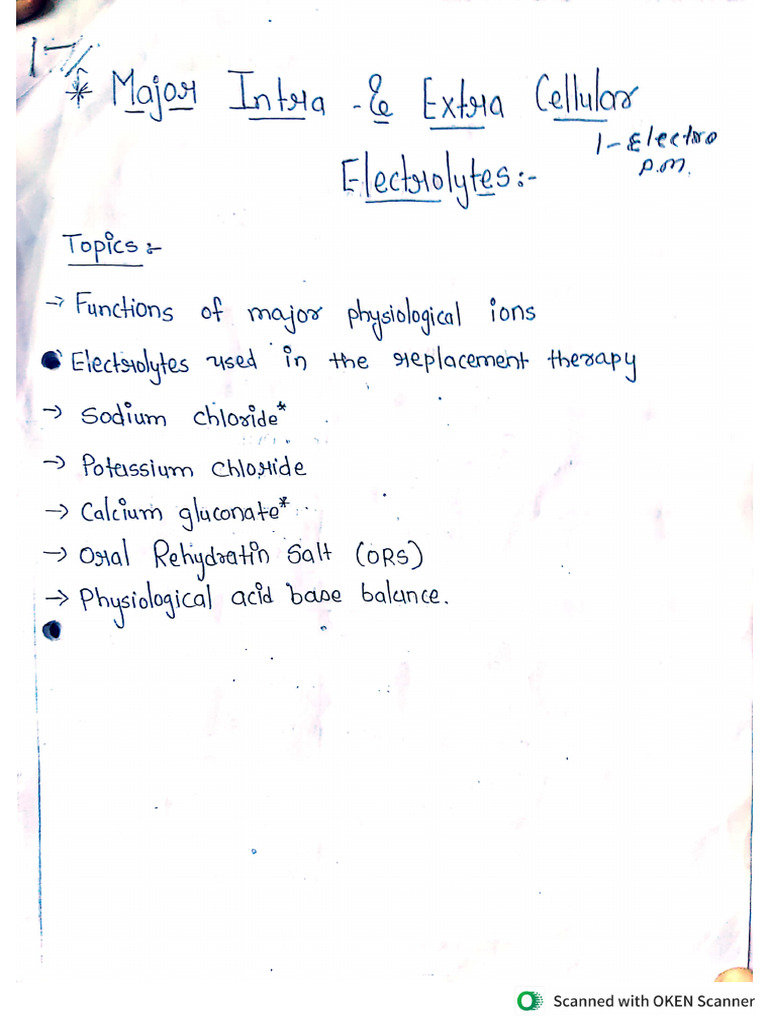 17/
* Major Intra - & Extra Cellular
1 - Electro
P.M.
Electrolytes :-
Topics :-
→ Functions of major physiological ions
Electrolytes used in the replacement therapy
→ Sodium chloride*
→ Potassium chloride
→ Calcium gluconate*
→ Oral Rehydratin Salt (ORS)
→ Physiological acid base balance.
Scanned with OKEN Scanner